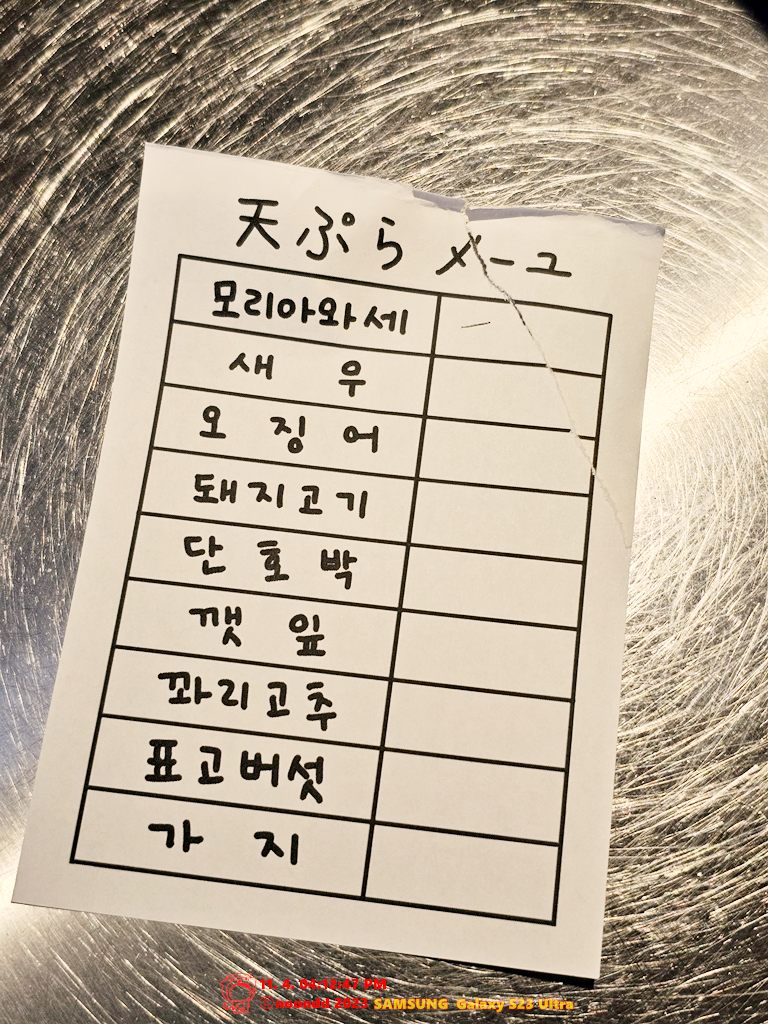 天ぷら メーユ
모리아와세
새우
오징어
돼지고기
단호박
깻잎
꽈리고추
표고버섯
가지
11. 4. 04:12:47 PM
©noondd 2023 SAMSUNG Galaxy S23 Ultra